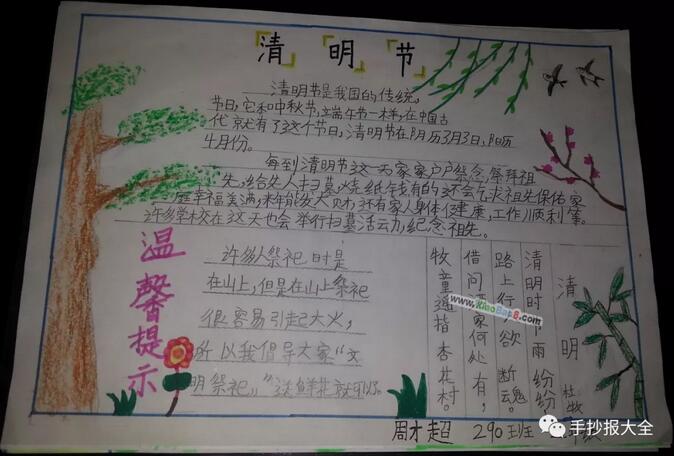 清明节
清明节是我国的传统
节日,它和中秋节,端午节一样,在中国古
代就有了这个节日,清明节在阴历3月3日,阳历
4月份。
每到清明节这一天家家户户祭念,祭拜祖
先,给先人扫墓,烧纸钱有的还会乞求祖先保佑家
庭幸福美满,来年能发大财,还有家人身体健康,工作顺利等。
许多学校在这天也会举行扫墓活动,纪念祖先。
温馨提示
许多人祭祀时是
在山上,但是在山上祭祀
很容易引起大火,
所以我倡导大家“文
明祭祀”,送鲜花就可以。
清明
杜牧
清明时 雨纷纷
路上行 欲断魂。
借问 家何处有,
牧童遥指杏花村。
www.XiaoBao8.com
周才超 290班
手抄报大全